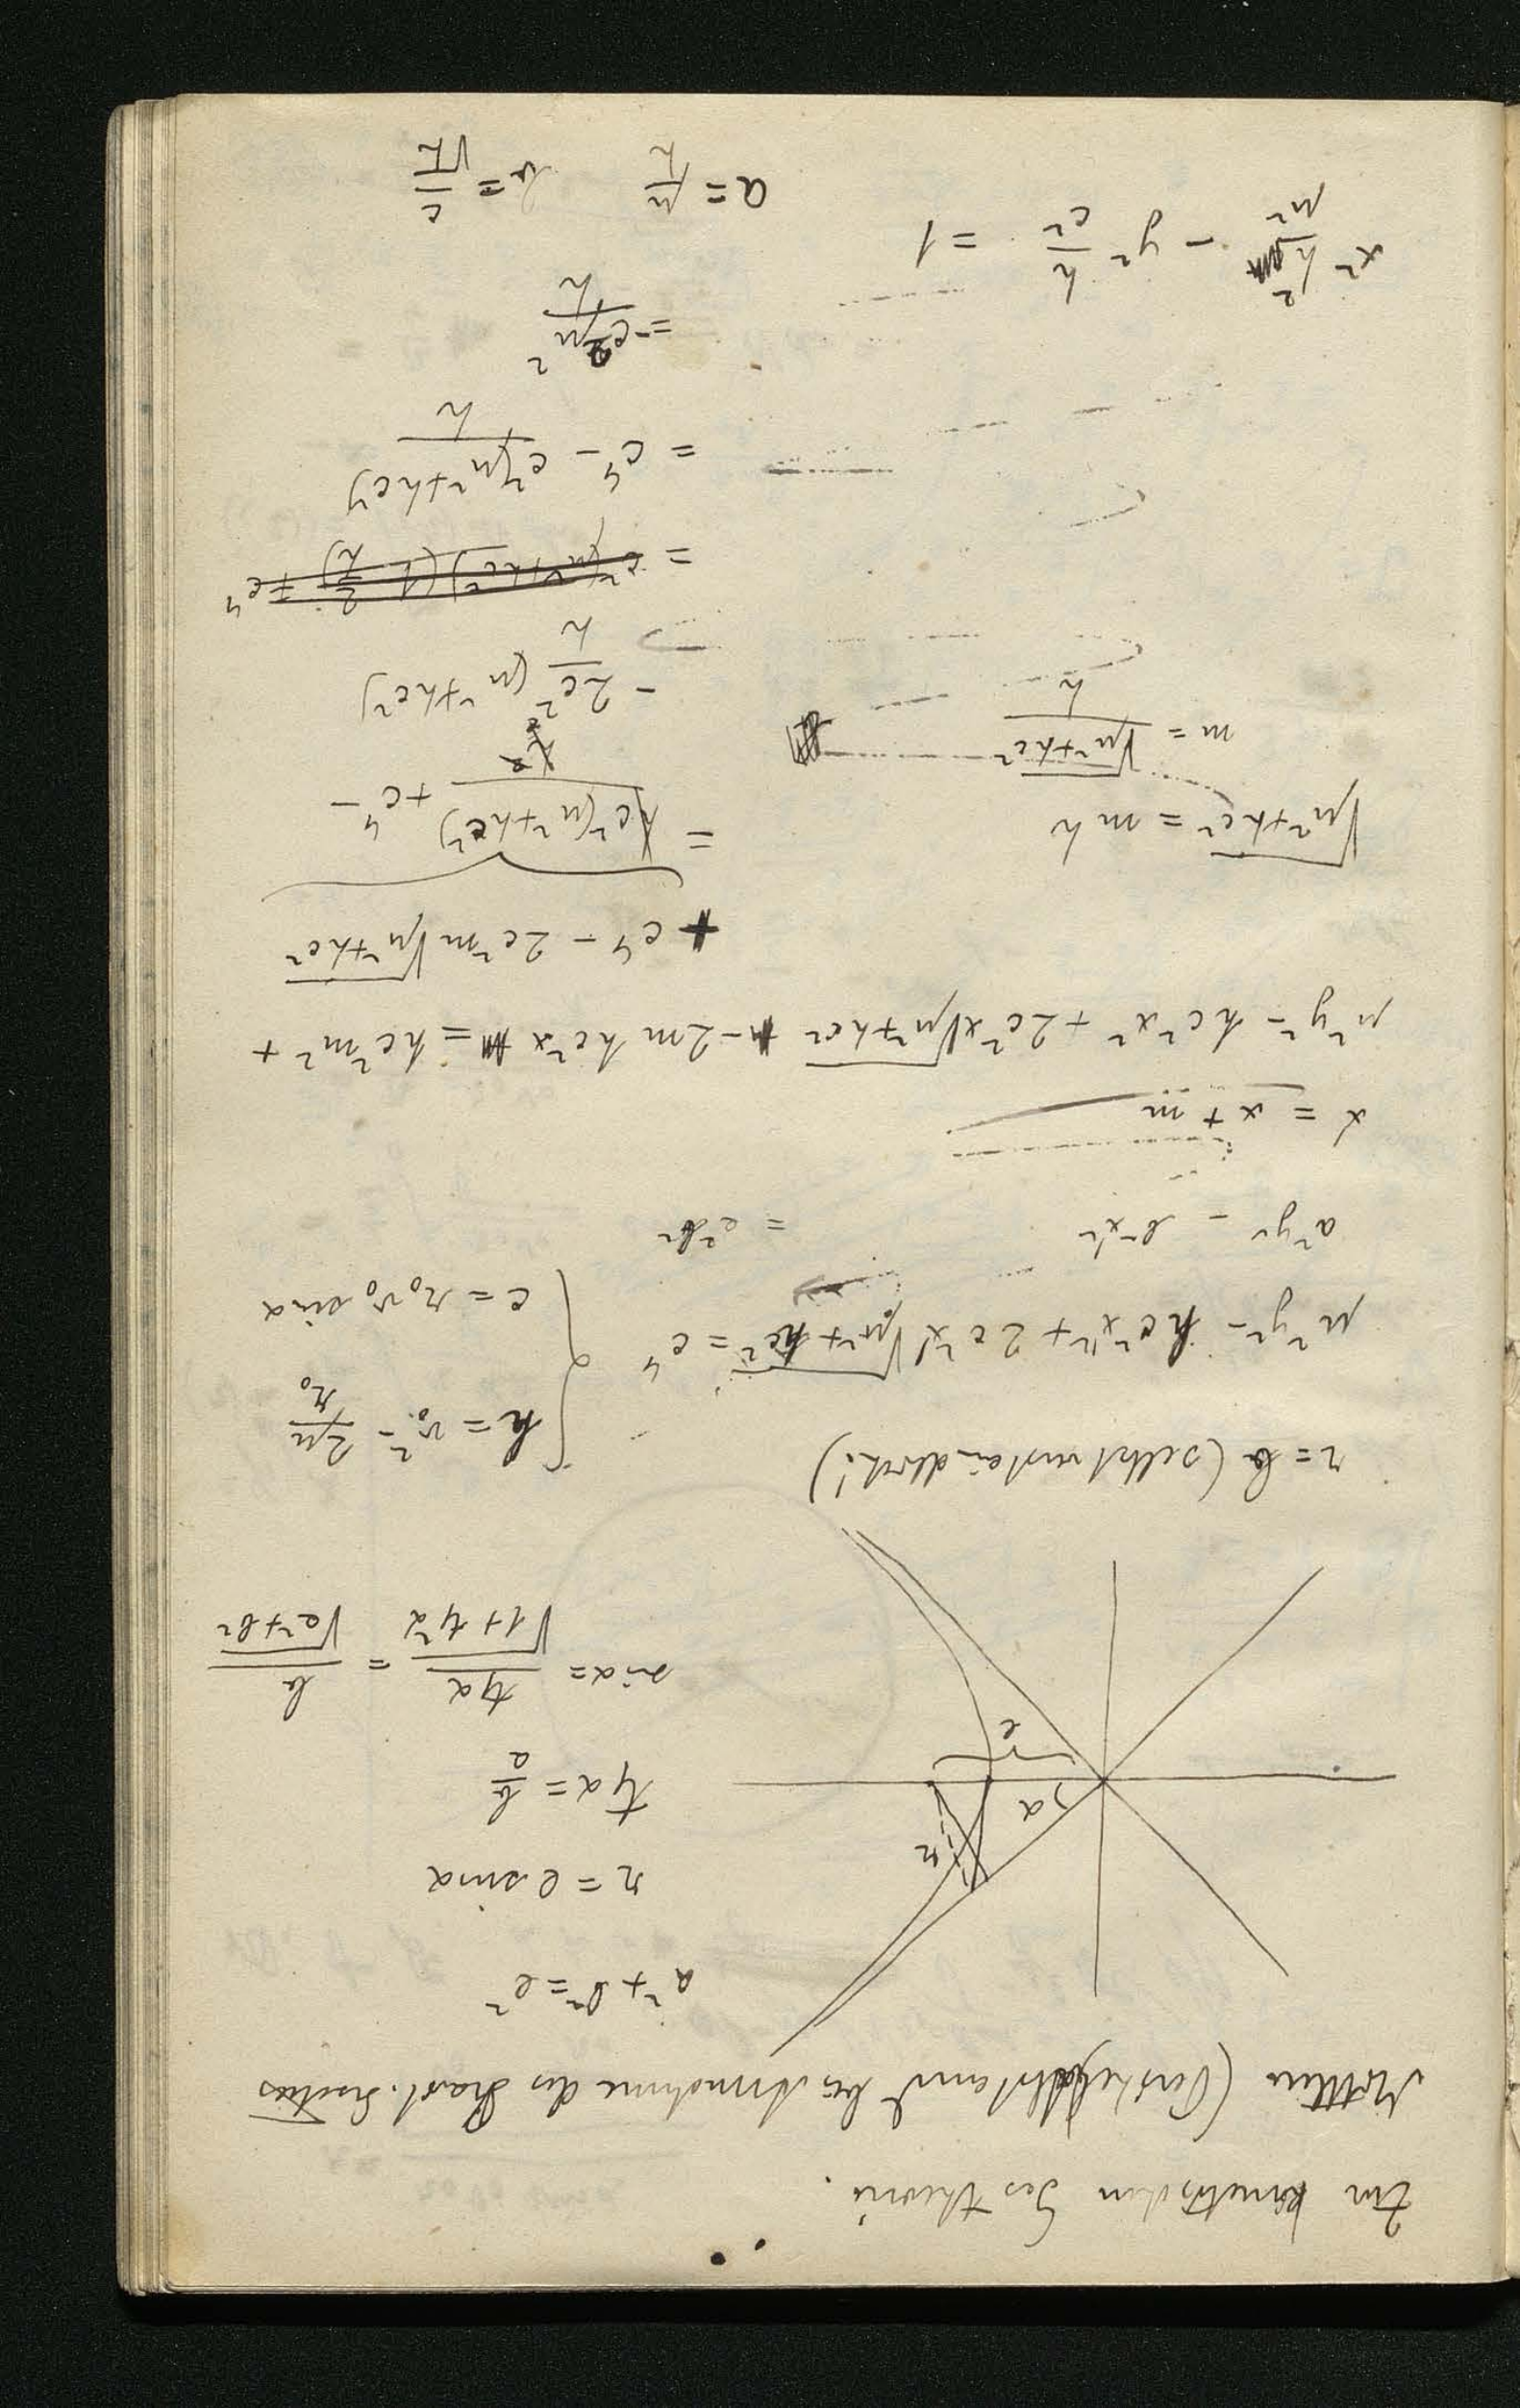 Zur kinetischen Gastheorie.
Mittlerer (Perihelabstand bei Annahme des
a² + b² = e²
r = e sin α
tg α = b/a
sin α = tg α / √(1 + tg²α) = b / √(a² + b²)
α
r
e
r = b (selbstverständlich!)
h = v₀² − 2μ/r₀
c = r₀ v₀ sin α
μ²y² − hc²x'² + 2c²x'√(μ² + hc²) = c⁴
a²y² − b²x'² = a²b²
x' = x + m
μ²y² − hc²x² + 2c²x√(μ² + hc²) − 2m hc²x = hc²m² +
+ c⁴ − 2c²m√(μ² + hc²)
√(μ² + hc²) = mh
m = √(μ² + hc²) / h
= hc²(μ² + hc²) / h² + c⁴ −
− 2c²/h (μ² + hc²)
= c²(μ² + hc²)(1 − 2/h) + c⁴
= c⁴ − c²(μ² + hc²) / h
= −c²μ² / h
x² h²/μ² − y² h/c² = 1
a = μ/h b = c/√h